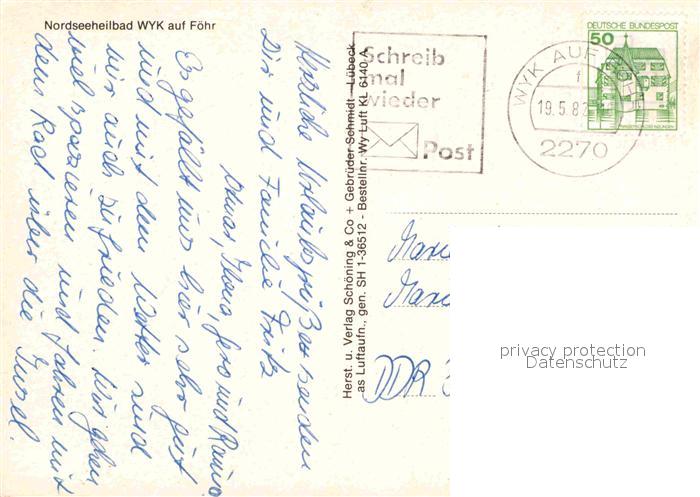 Nordseeheilbad WYK auf Föhr
Herzliche Urlaubsgrüße senden
Dir und Familie Fritz
Jens und
Es gefällt uns hier sehr gut
und mit dem Wetter sind
wir auch zufrieden. Wir gehen
viel spazieren und fahren mit
dem Rad über die Insel.
Herst. u. Verlag Schöning & Co + Gebrüder Schmidt - Lübeck
as Luftaufn., gen. SH 1-36512 - Bestellnr. Wy Luft KL 6140 A
Schreib
mal
wieder
Post
WYK AUF
f
19.5.82
2270
DEUTSCHE BUNDESPOST
50
DDR
privacy protection
Datenschutz